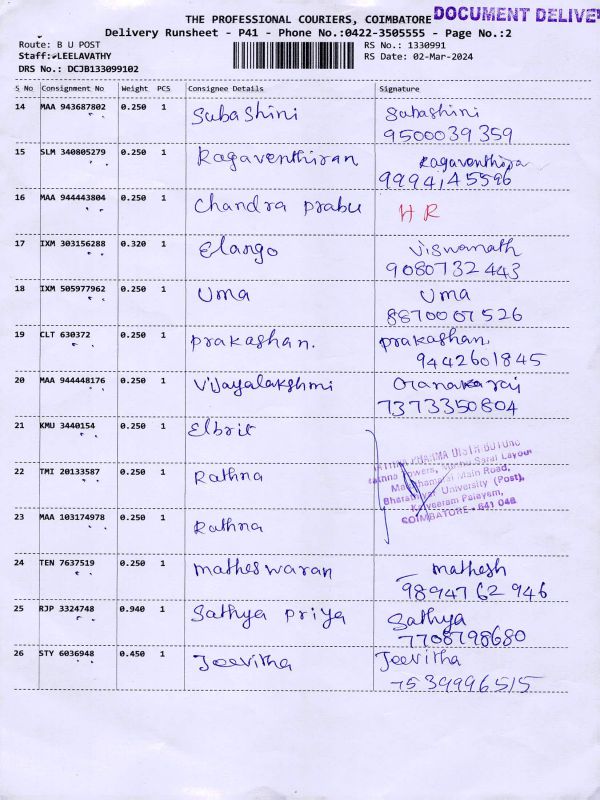 THE PROFESSIONAL COURIERS, COIMBATORE DOCUMENT DELIVE
Delivery Runsheet - P41 - Phone No.:0422-3505555 - Page No.:2
Route: B U POST RS No.: 1330991
Staff: LEELAVATHY RS Date: 02-Mar-2024
DRS No.: DCJB133099102
S No Consignment No Weight PCS Consignee Details Signature
14 MAA 943687802 0.250 1 Subashini Subashini
9500039359
15 SLM 340805279 0.250 1 Ragaventhiran Ragaventhira
9994145596
16 MAA 944443804 0.250 1 Chandra prabu HR
17 IXM 303156288 0.320 1 Elango Viswanath
9080732443
18 IXM 505977962 0.250 1 Uma Uma
8870007526
19 CLT 630372 0.250 1 prakashan. prakashan
9442601845
20 MAA 944448176 0.250 1 Vijayalakshmi
7373350804
21 KMU 3440154 0.250 1 Elbrit
PHARMA DISTRIBUTORS
Towers, Saral Layout
22 TMI 20133587 0.250 1 Rathna
Main Road,
University (Post),
23 MAA 103174978 0.250 1 Rathna
Palayam,
COIMBATORE - 641 046
24 TEN 7637519 0.250 1 matheswaran mathesh
9894762946
25 RJP 3324748 0.940 1 Sathya priya Sathya
7708798680
26 STY 6036948 0.450 1 Jeevitha Jeevitha
7539996515